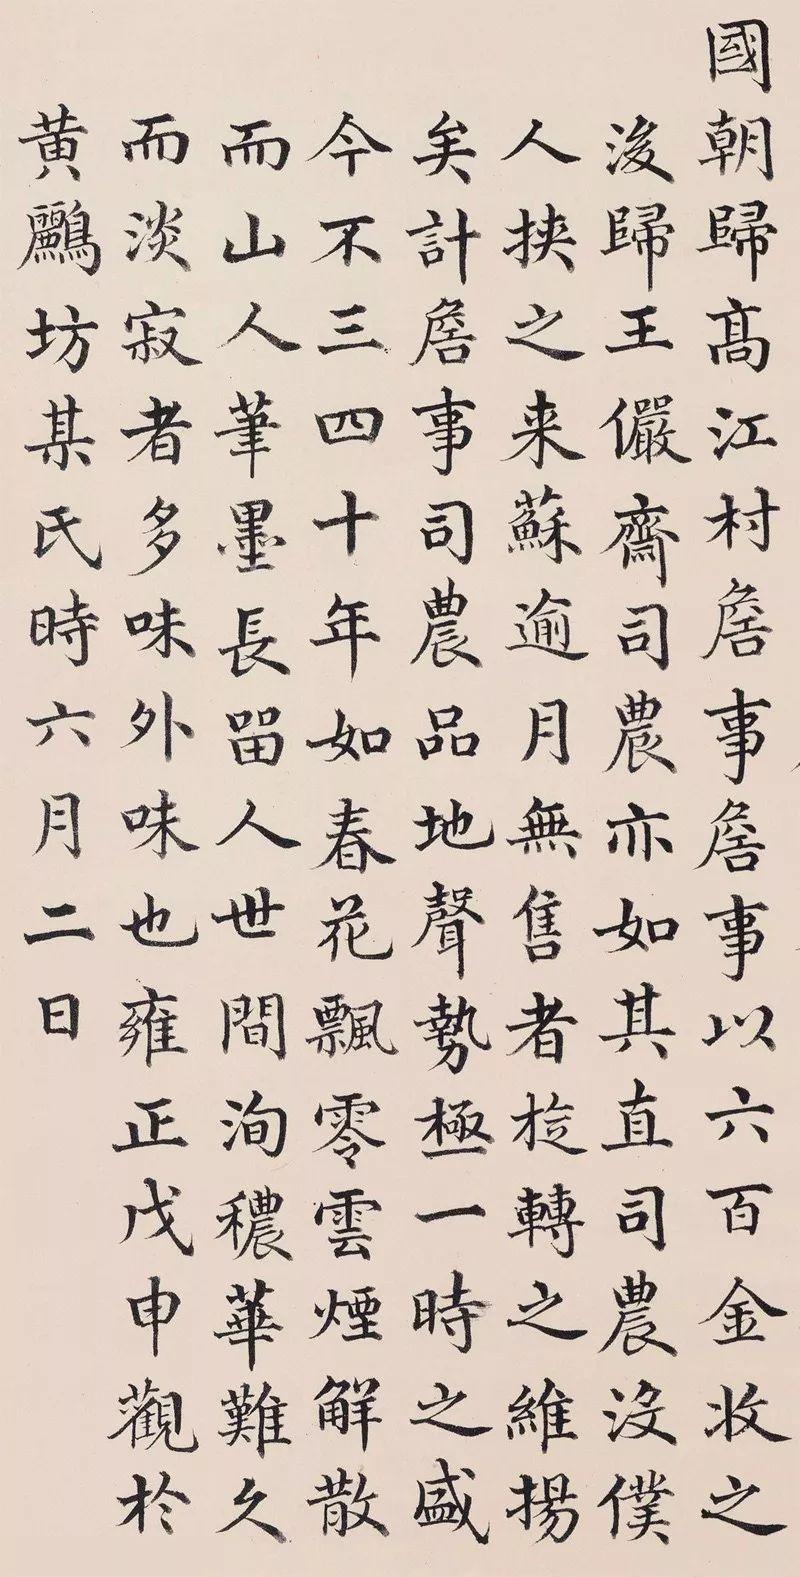 國朝歸髙江村詹事詹事以六百金收之
後歸王儼齋司農亦如其直司農没僕
人挾之来蘇逾月無售者旋轉之維揚
矣計詹事司農品地聲勢極一時之盛
今不三四十年如春花飄零雲煙解散
而山人筆墨長留人世間洵穠華難久
而淡寂者多味外味也雍正戊申觀於
黄鸝坊某氏時六月二日